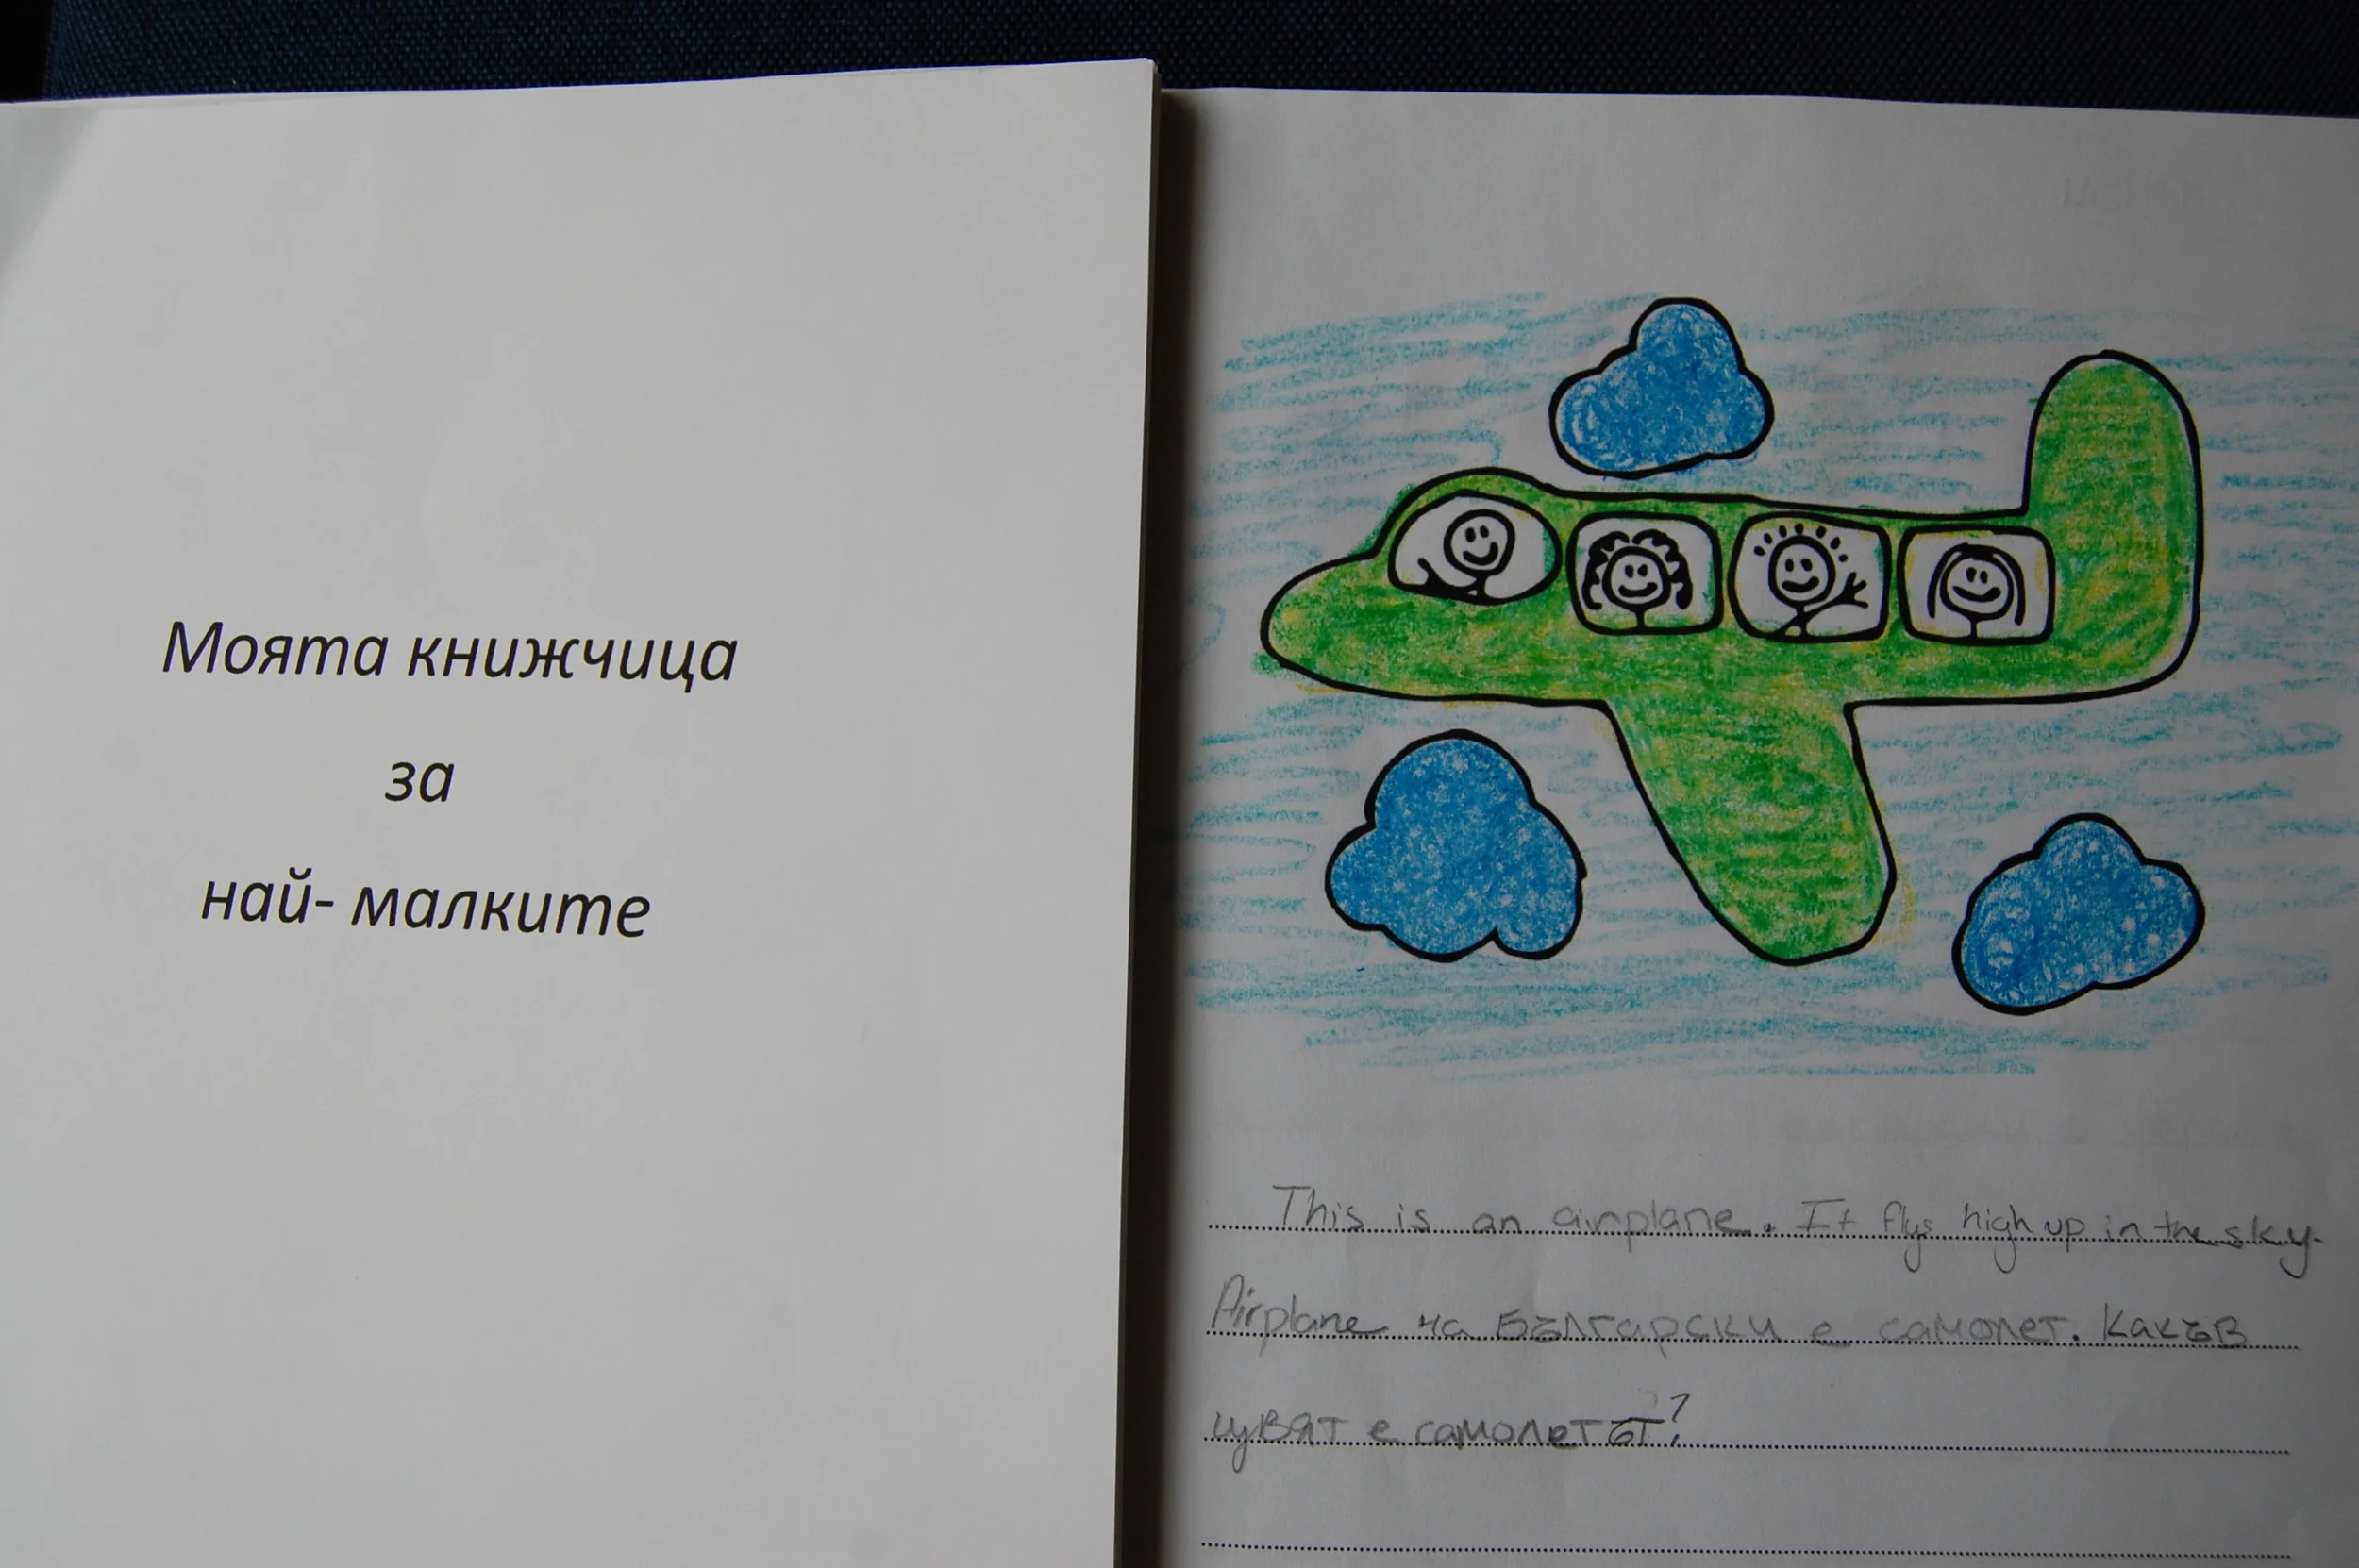 Моята книжчица
за
най- малките
This is an airplane. It flys high up in the sky.
Airplane на Български е самолет. Какъв
цувят е самолетът?